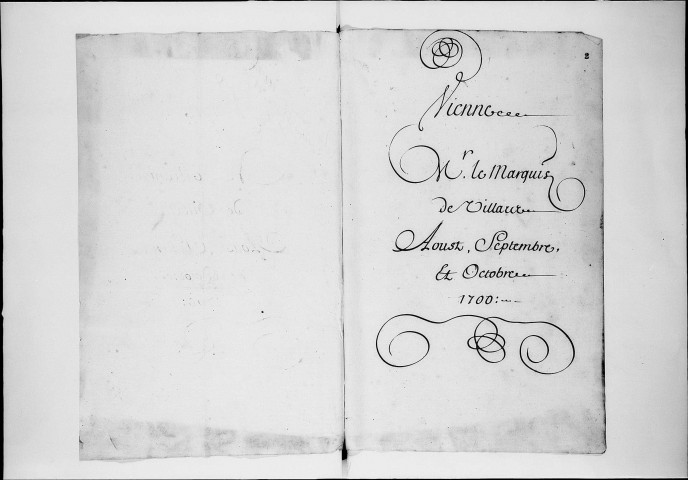 Vienne
Mr. le Marquis
de Villars
Aoust, Septembre,
Et Octobre
1700: